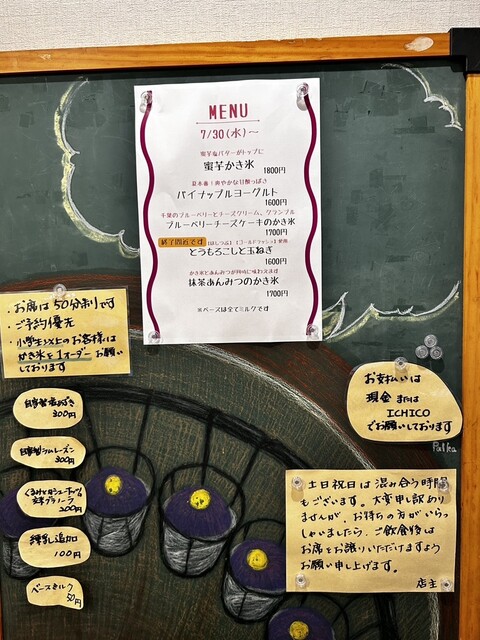 MENU
7/30(水)〜
蜜芋&バターがトップに
蜜芋かき氷
1800円
夏本番！爽やかな甘酸っぱさ
パイナップルヨーグルト
1600円
千葉のブルーベリーとチーズクリーム、クランブル
ブルーベリーチーズケーキのかき氷
1700円
終了間近です
【ほしつぶ】【ゴールドラッシュ】使用
とうもろこしと玉ねぎ
1600円
かき氷とあんみつが同時に味わえます
抹茶あんみつのかき氷
1700円
※ベースは全てミルクです
・お席は50分制りです
・ご予約優先
・小学生以上のお客様は
かき氷を1オーダーお願い
しております
自家製あずき
300円
自家製ラムレーズン
300円
くるみと
200円
練乳追加
100円
ベースミルク
50円
お支払いは
現金 または
ICHICO
でお願いしております
Palka
土日祝日は混み合う時間
もございます。大変申し訳あり
ませんが、お待ちの方がいらっ
しゃいましたら、ご飲食後は
お席をお譲りいただけますよう
お願い申し上げます。
店主